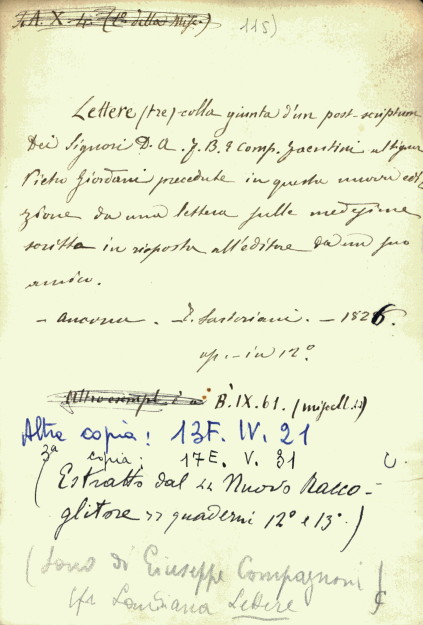 A. X. 4. (C. della Misc.)
115)
Lettere (tre) colla giunta d'un post-scriptum
Dei Signori D. A. F. B. E Comp. Faentini al Sigr.
Pietro Giordani precedute in questa nuova edi-
zione da una lettera sulle medesime
scritta in risposta all'editore da un suo
amico.
- Ancona. - Sartoriani. - 1826.
op. - in 12.º
Altro esempl. B. IX. 61. (miscell.)
Altra copia: 13F. IV. 21
3ª copia: 17E. V. 31
(Estratto dal "Nuovo Racco-
glitore" quaderni 12º e 13º.)
(Sono di Giuseppe Compagnoni
Landiana Lettere